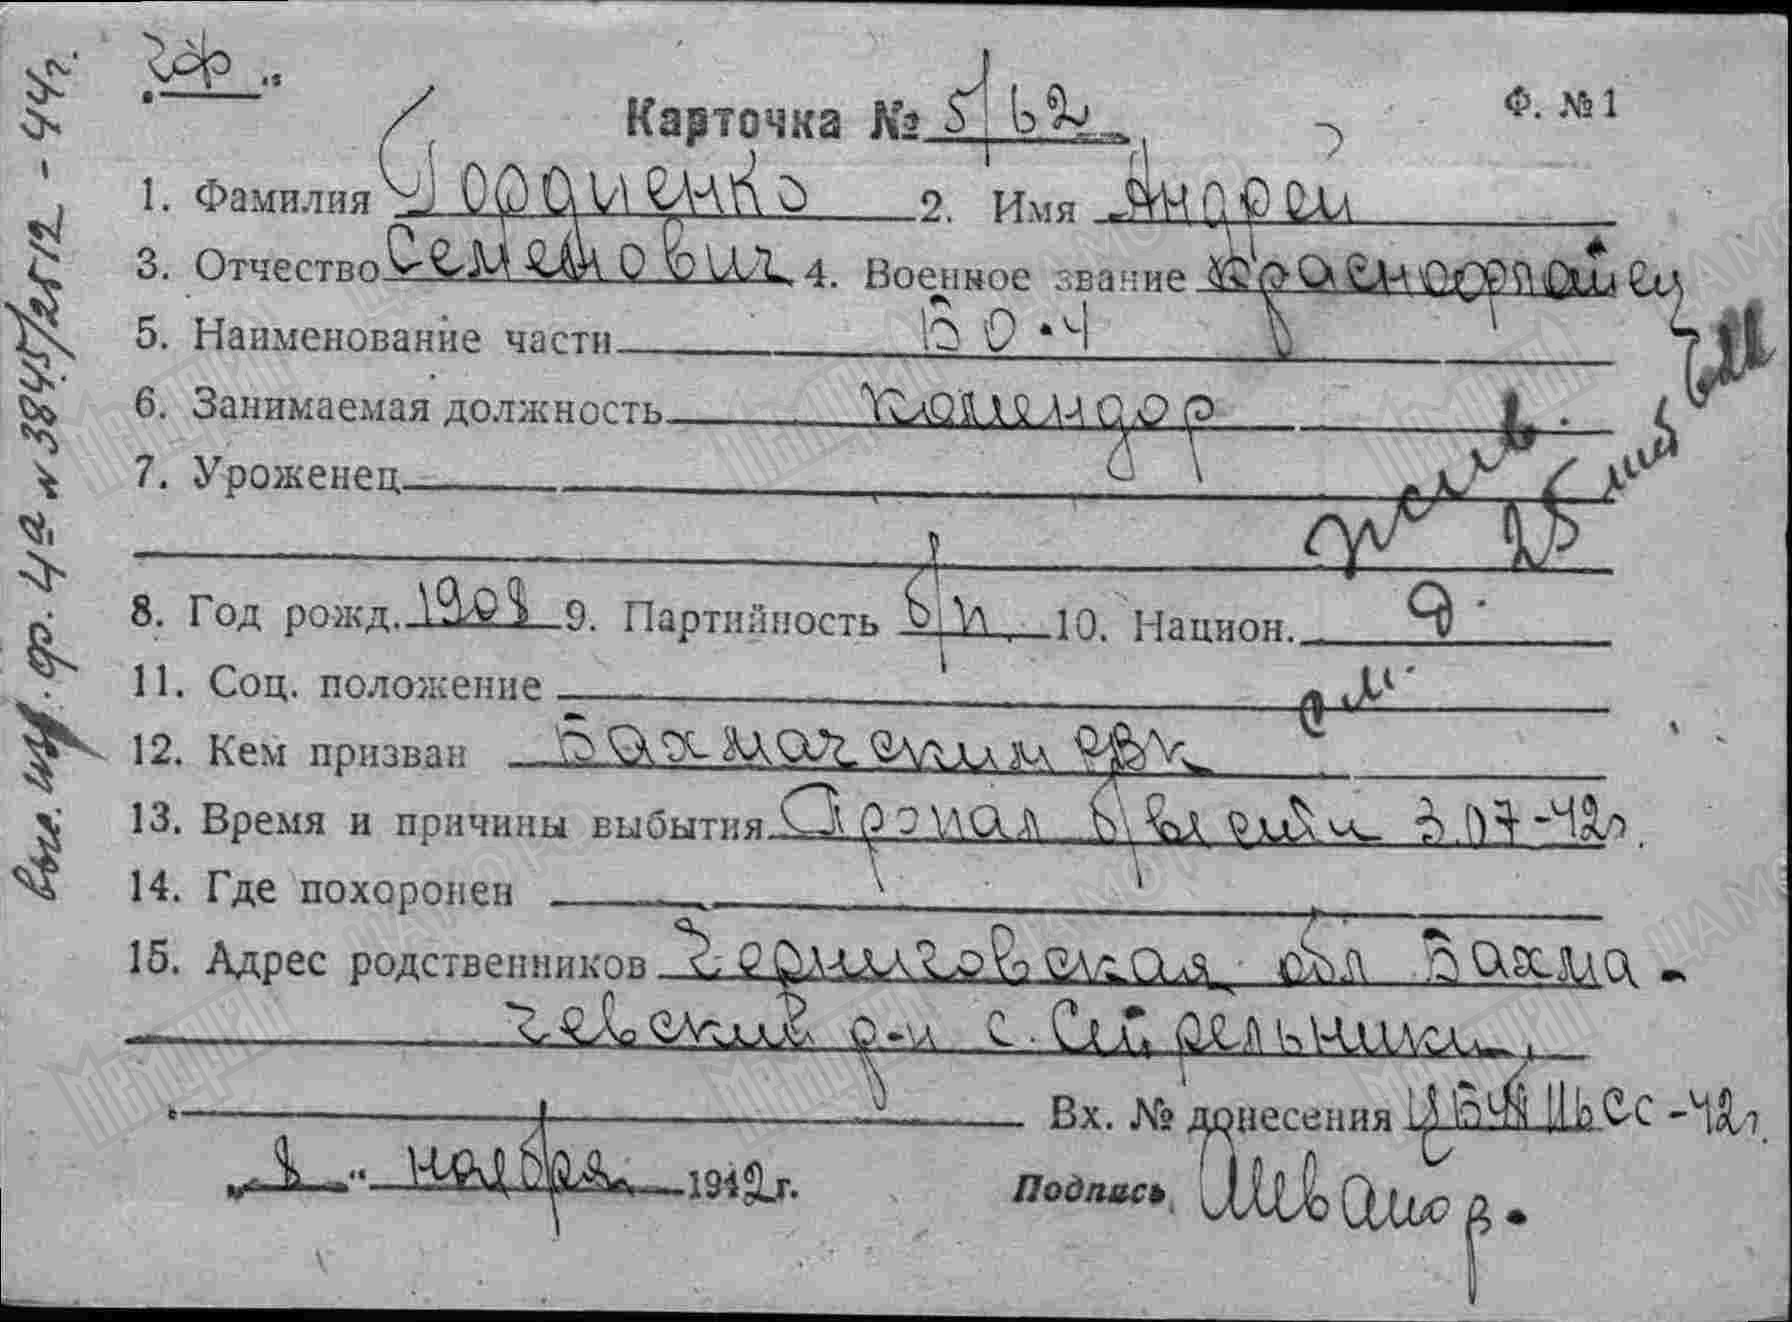 чф
Карточка № 5/62
Ф. №1
1. Фамилия Гордиенко 2. Имя Андрей
3. Отчество Семенович 4. Военное звание Краснофлотец
5. Наименование части БО-4
6. Занимаемая должность комендор
7. Уроженец
8. Год рожд. 1908 9. Партийность б/п. 10. Национ.
11. Соц. положение
12. Кем призван Бахмачским РВК
13. Время и причины выбытия Пропал б/вести 3.07-42г.
14. Где похоронен
15. Адрес родственников Черниговская обл Бахма-
чевский р-н с. Стрельники
Вх. № донесения -42г.
„8“ ноября 1942г.
Подпись
ф. 4а №3845/2512-44г.